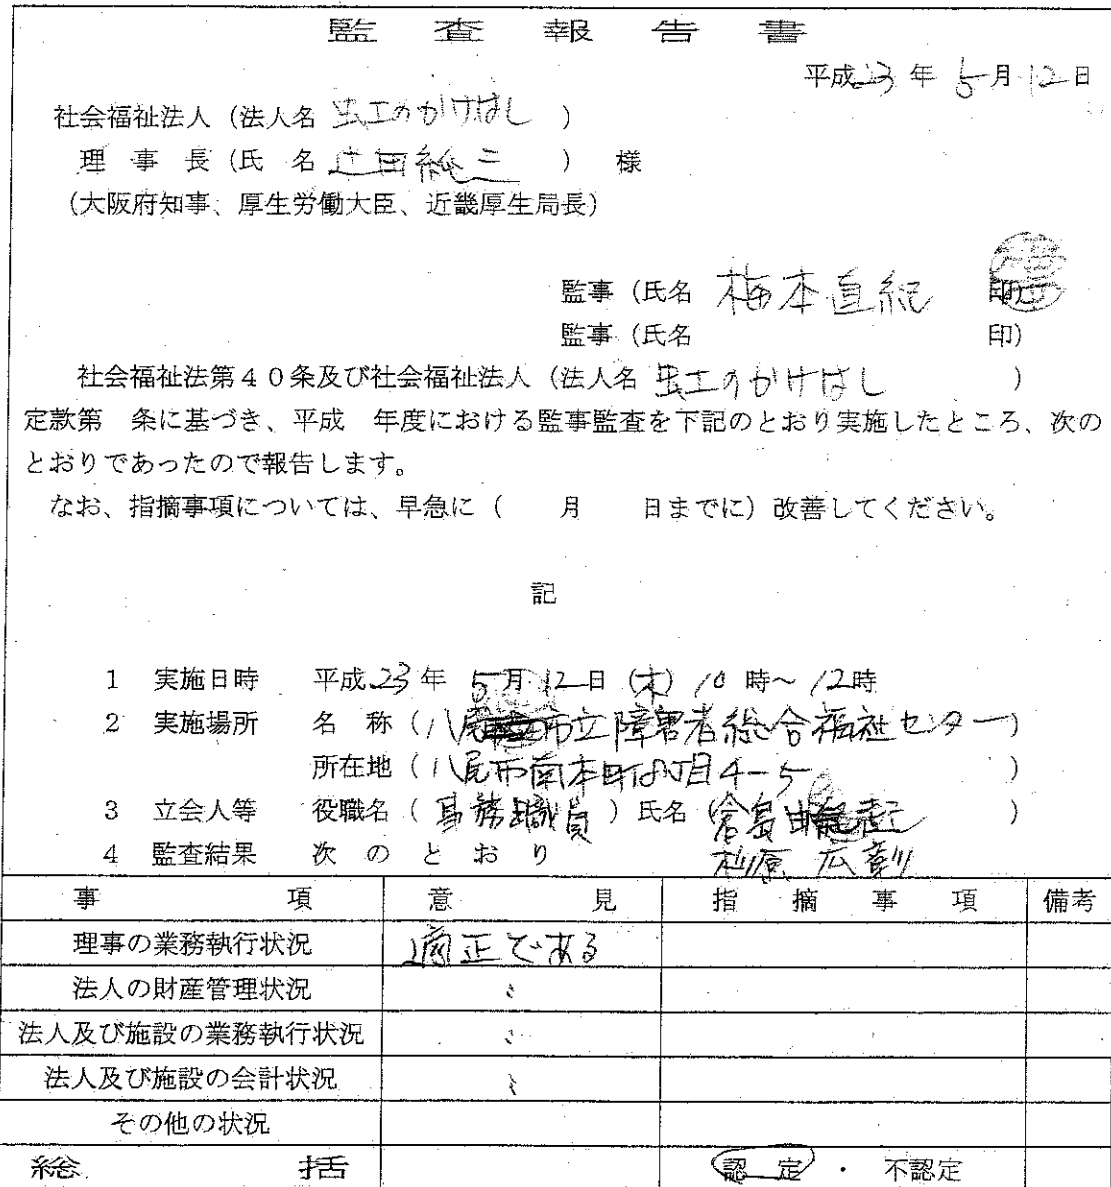 監査報告書
平成23年5月12日
社会福祉法人（法人名 虹のかけはし ）
理事長（氏名 辻田 三 ）様
（大阪府知事、厚生労働大臣、近畿厚生局長）
監事（氏名 梅本直紀 印）
監事（氏名 印）
社会福祉法第40条及び社会福祉法人（法人名 虹のかけはし ）
定款第 条に基づき、平成 年度における監事監査を下記のとおり実施したところ、次の
とおりであったので報告します。
なお、指摘事項については、早急に（ 月 日までに）改善してください。
記
1 実施日時 平成23年 5月12日（木）10時～12時
2 実施場所 名称（八尾市立障害者総合福祉センター）
所在地（八尾市南本町8丁目4-5 ）
3 立会人等 役職名（事務職員）氏名（倉島 ）
4 監査結果 次のとおり 杉原 広彰
事項 意見 指摘事項 備考
理事の業務執行状況 適正である
法人の財産管理状況 〃
法人及び施設の業務執行状況 〃
法人及び施設の会計状況 〃
その他の状況
総括 認定・不認定